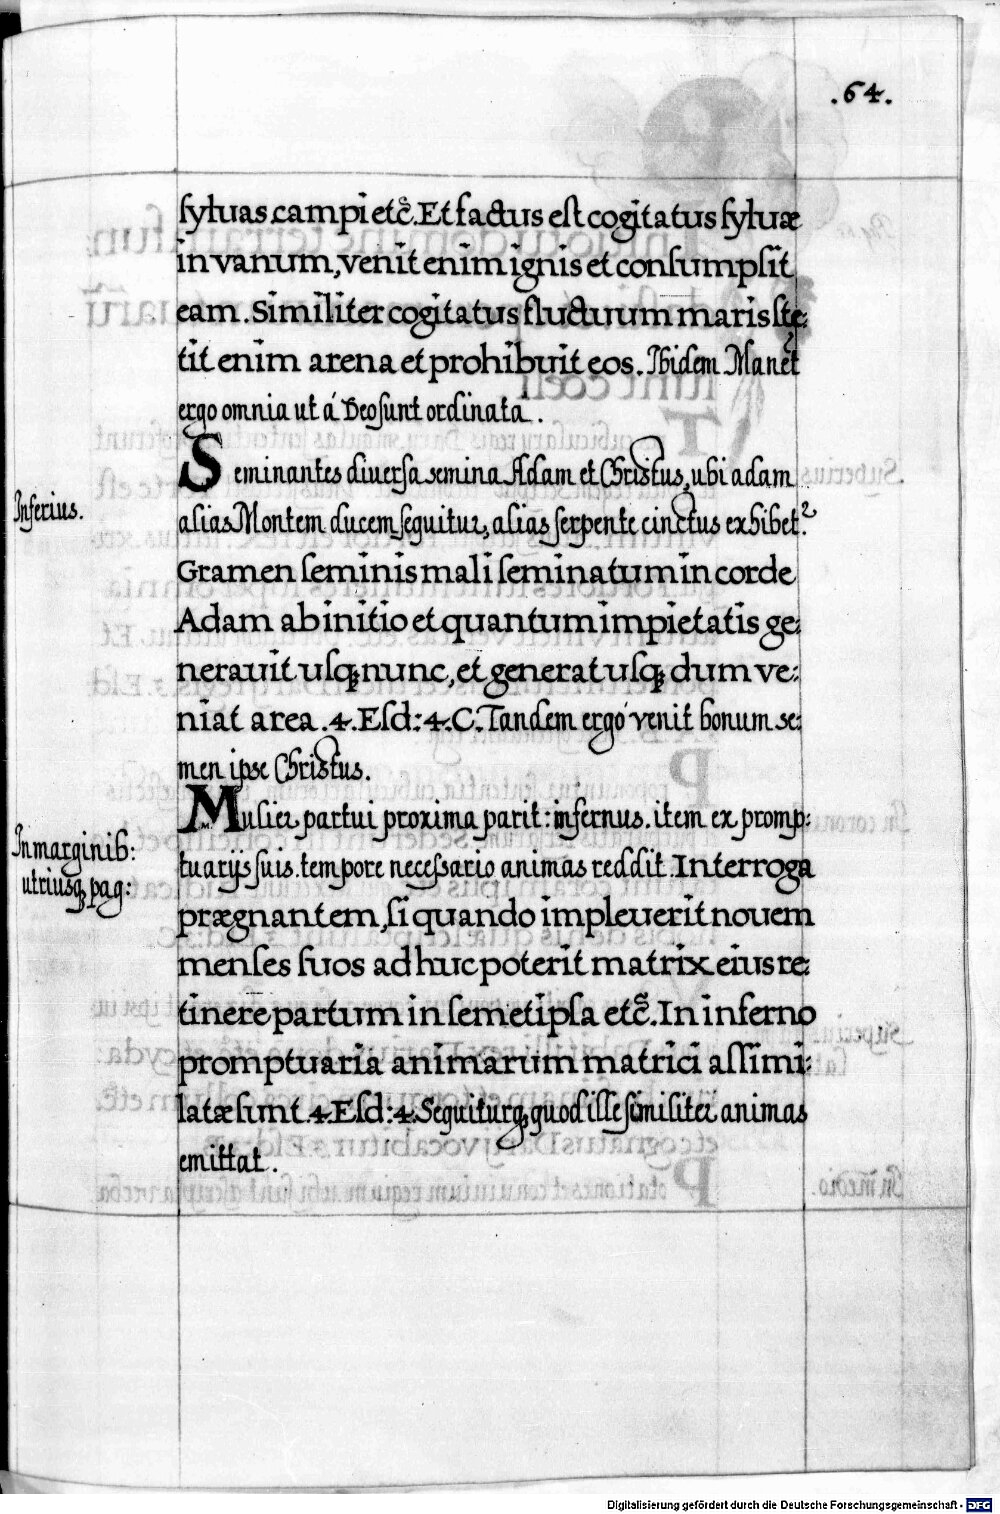 .64.
ſyluas campi etc̃. Et factus eſt cogitatus ſyluæ
in vanum, venit enim ignis et conſumpſit
eam. Similiter cogitatus fluctuum maris ſte:
tit enim arena et prohibuit eos. Ibidem Manet
ergo omnia ut á Deo ſunt ordinata.
Seminantes diuerſa semina Adam et Christus, ubi adam
Inferius.
alias Montem ducem ſequitur, alias ſerpente cinctus exhibet?
Gramen ſeminis mali ſeminatum in corde
Adam ab initio et quantum impietatis ge:
nerauit uſq; nunc, et generat uſq; dum ve:
niat area .4. Eſd: 4. C. Tandem ergo venit bonum se:
men ipse Christus.
Mulier partui proxima parit: infernus. item ex promp:
In marginib:
tuarijs ſuis. tempore neceſſario animas reddit. Interroga
utriusq; pag:
prægnantem, ſi quando impleuerit nouem
menſes ſuos adhuc poterit matrix eius re:
tinere partum in ſemetipſa etc̃. In inferno
promptuaria animarum matrici aſſimi:
latæ ſunt .4. Eſd: 4. Sequitur q; quod ille ſimiliter animas
emittat.
Digitalisierung gefördert durch die Deutsche Forschungsgemeinschaft - DFG